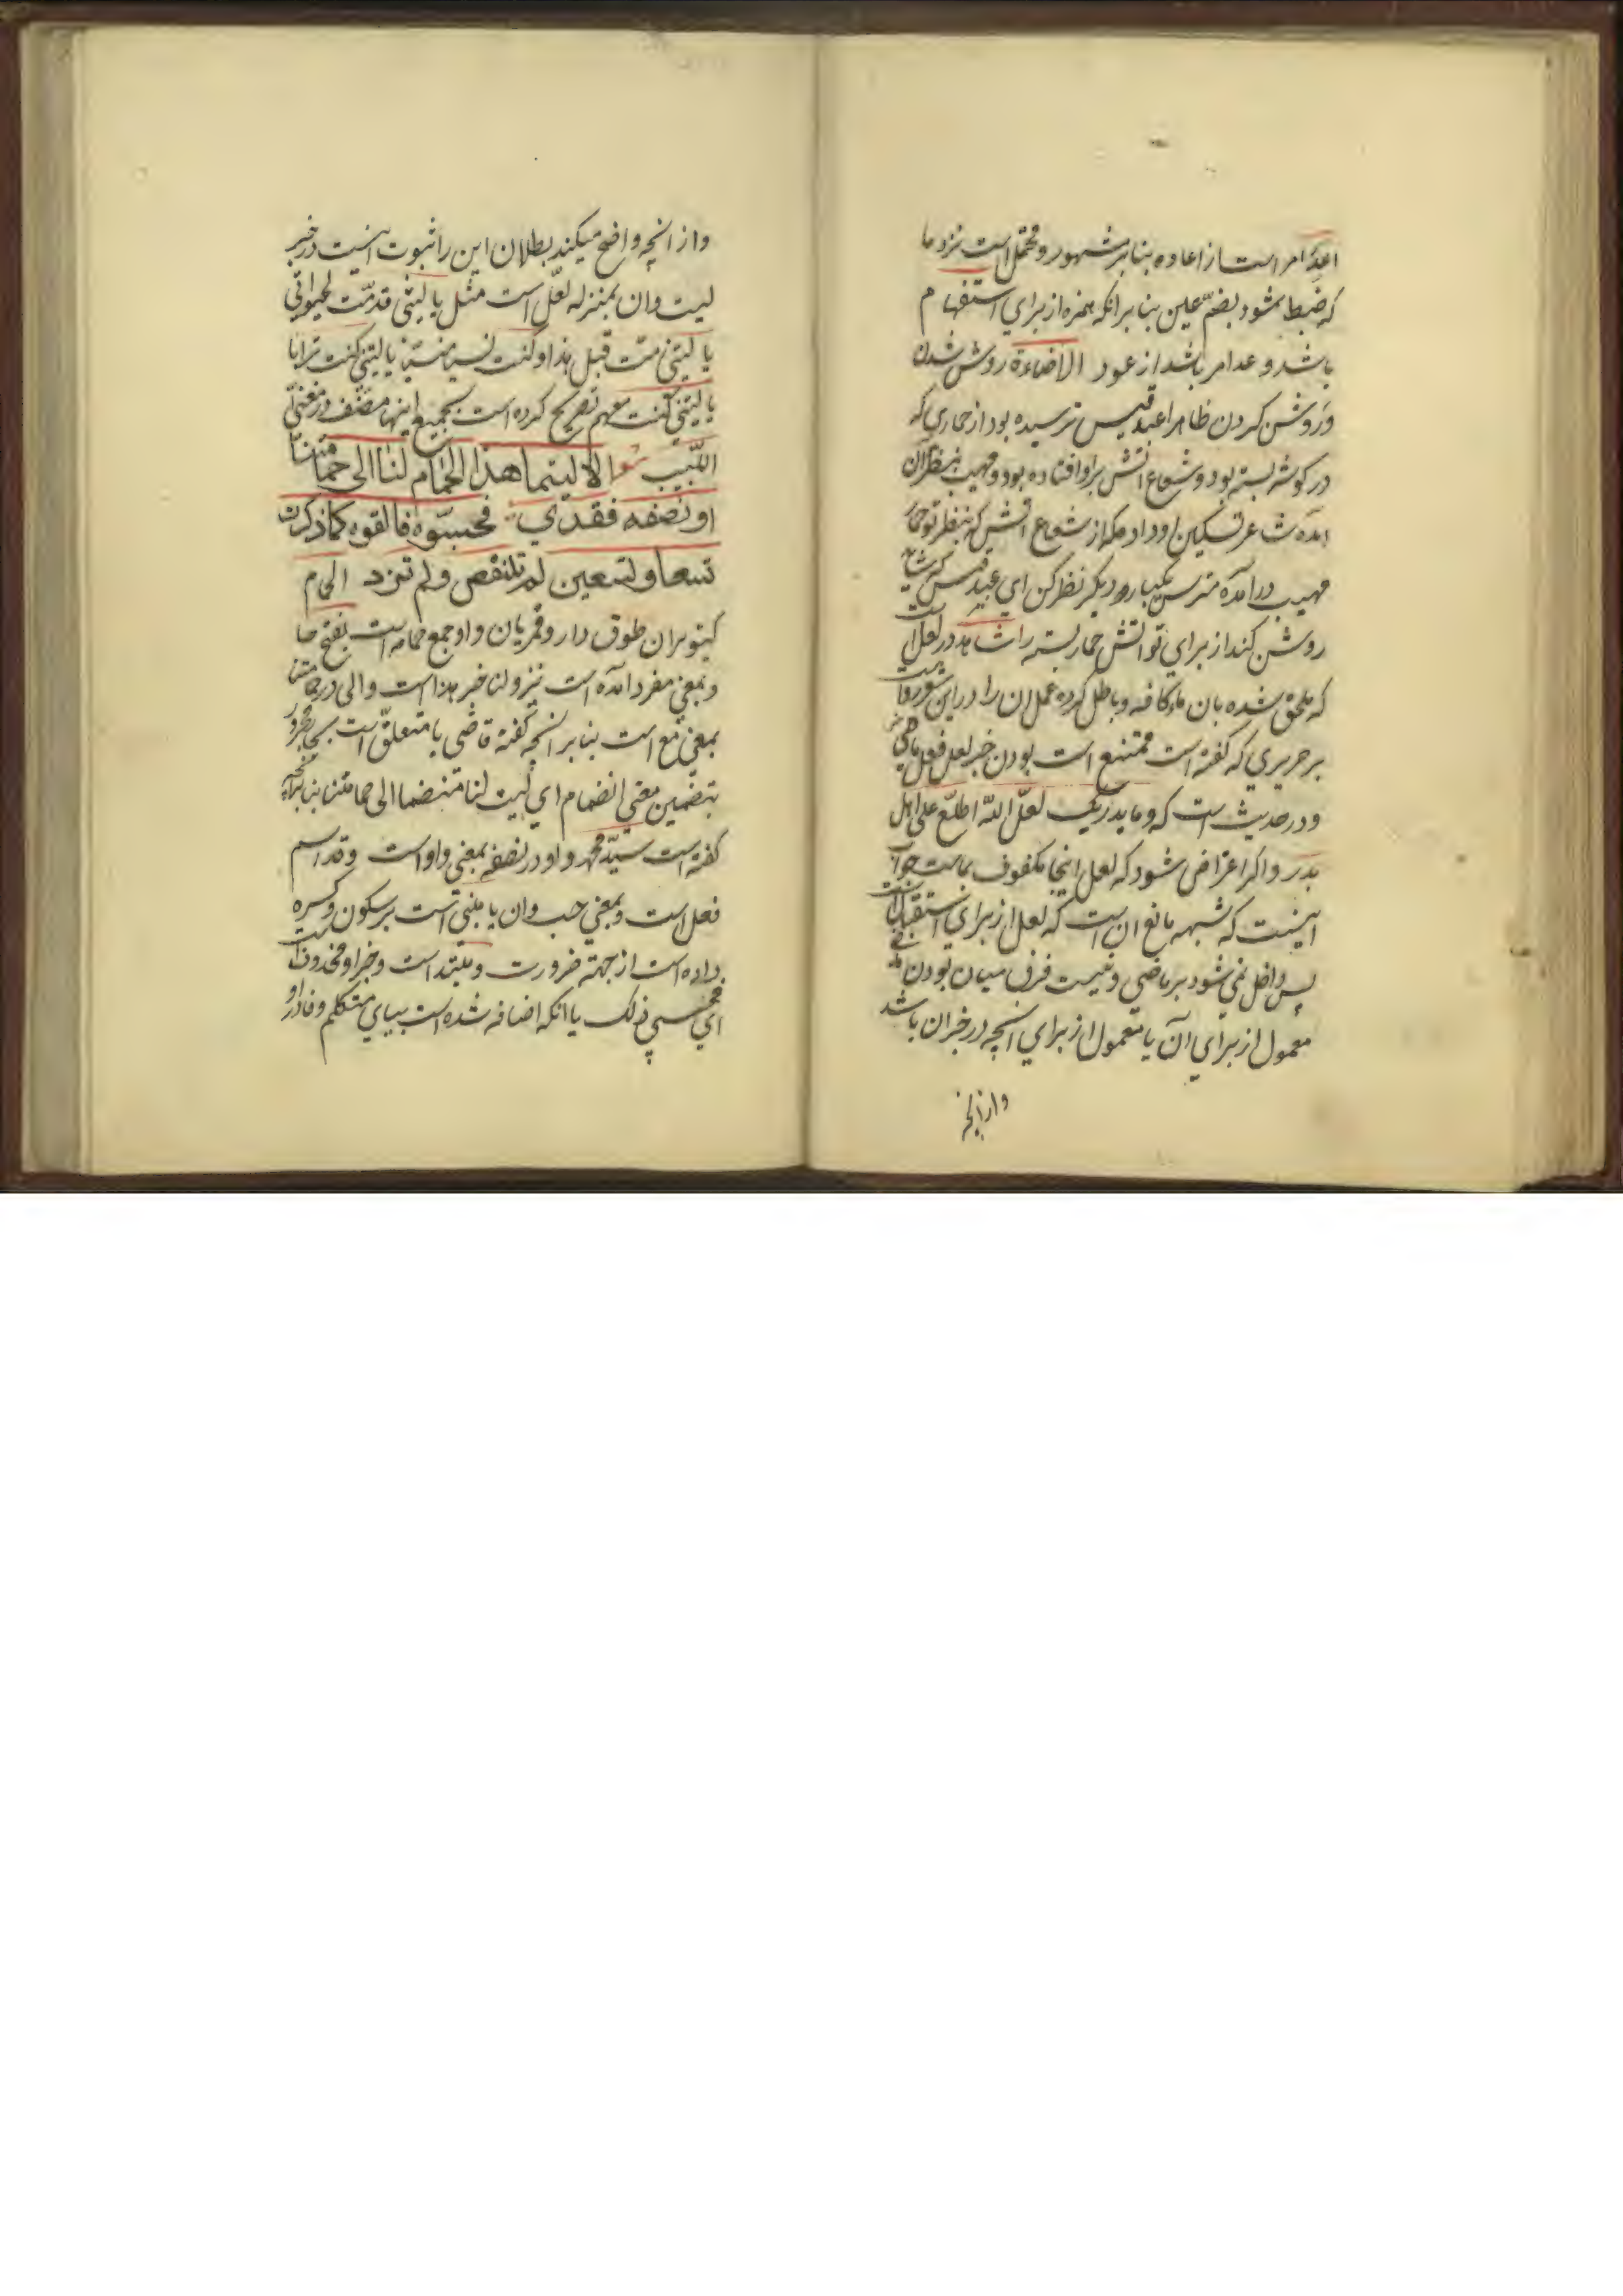 اعد امر است از اعاده بنا بر مشهور و محتمل است نزد ما
که ضبط بشود بضمّ عین بنا بر انکه همزه از برای استفهام
باشد و عد امر باشد از عود الاضاءة روشن شدن
و روشن کردن ظاهرا عبد قیس ترسیده بود از حماری که
در کوشه بسته بود و شعاع اتش بر او افتاده بود و مهیب بنظر ان
امده شاعر تسکین او داد مکه از شعاع اتش که بنظر تو حمار
مهیب در آمده مترس یکبار دیکر نظر کن ای عبد قیس که شاید
روشن کند از برای تو اتش حمار بسته را شاهد در لعل است
که ملحق شده بان ماء کافه و باطل کرده عمل ان را در این شعر رد است
بر حریری که کفته است ممتنع است بودن خبر لعل فعل ماضی
و در حدیث است که و ما یدریک لعلّ اللّه اطلع علی اهل
بدر و اکر اعتراض شود که لعل اینجا مکفوف بماست جواب
اینست که شبهه مانع ان است که لعل از برای استقبال است
پس داخل نمی شود بر ماضی و نیست فرق میان بودن
معمول از برای آن یا معمول از برای انچه در خبر ان باشد
و از انچه
و از انچه واضح میکند بطلان این را ثبوت انست در خبر
لیت و ان بمنزله لعلّ است مثل یا لیتنی قدمّت لحیواتی
یا لیتنی متّ قبل هذا و کنت نسیا منسیّا یا لیتنی کنت ترابا
یا لیتنی کنت معهم تصریح کرده است بجمیع اینها مصنّف در مغنی
اللّبیب الا لیتما هذا الحمام لنا الی حمامتنا
او نصفه فقدی فحسبّوه فالقوه کما ذکرت
تسعا و تسعین لم تنقص و لم تزد الحمام
کبوتران طوق دار و قمریان و او جمع حمامه است بفتح حا
و بمعنی مفرد امده است نیز و لنا خبر هذا است و الی در حمامتنا
بمعنی مع است بنا بر انچه کفته قاضی یا متعلّق است بجار مجرور
بتضمین معنی انضمام ای لیت لنا منضما الی حمامتنا بنا بر انچه
کفته است سیّد محمد و او در نصفه بمعنی واو است و قد اسم
فعل است و بمعنی حسب و ان یا مبنی است بر سکون و کسره
داده است از جهة ضرورت و مبتداست و خبر او محذوف است
ای فحسبی ذلک یا انکه اضافه شده است بیای متکلم و فا در او